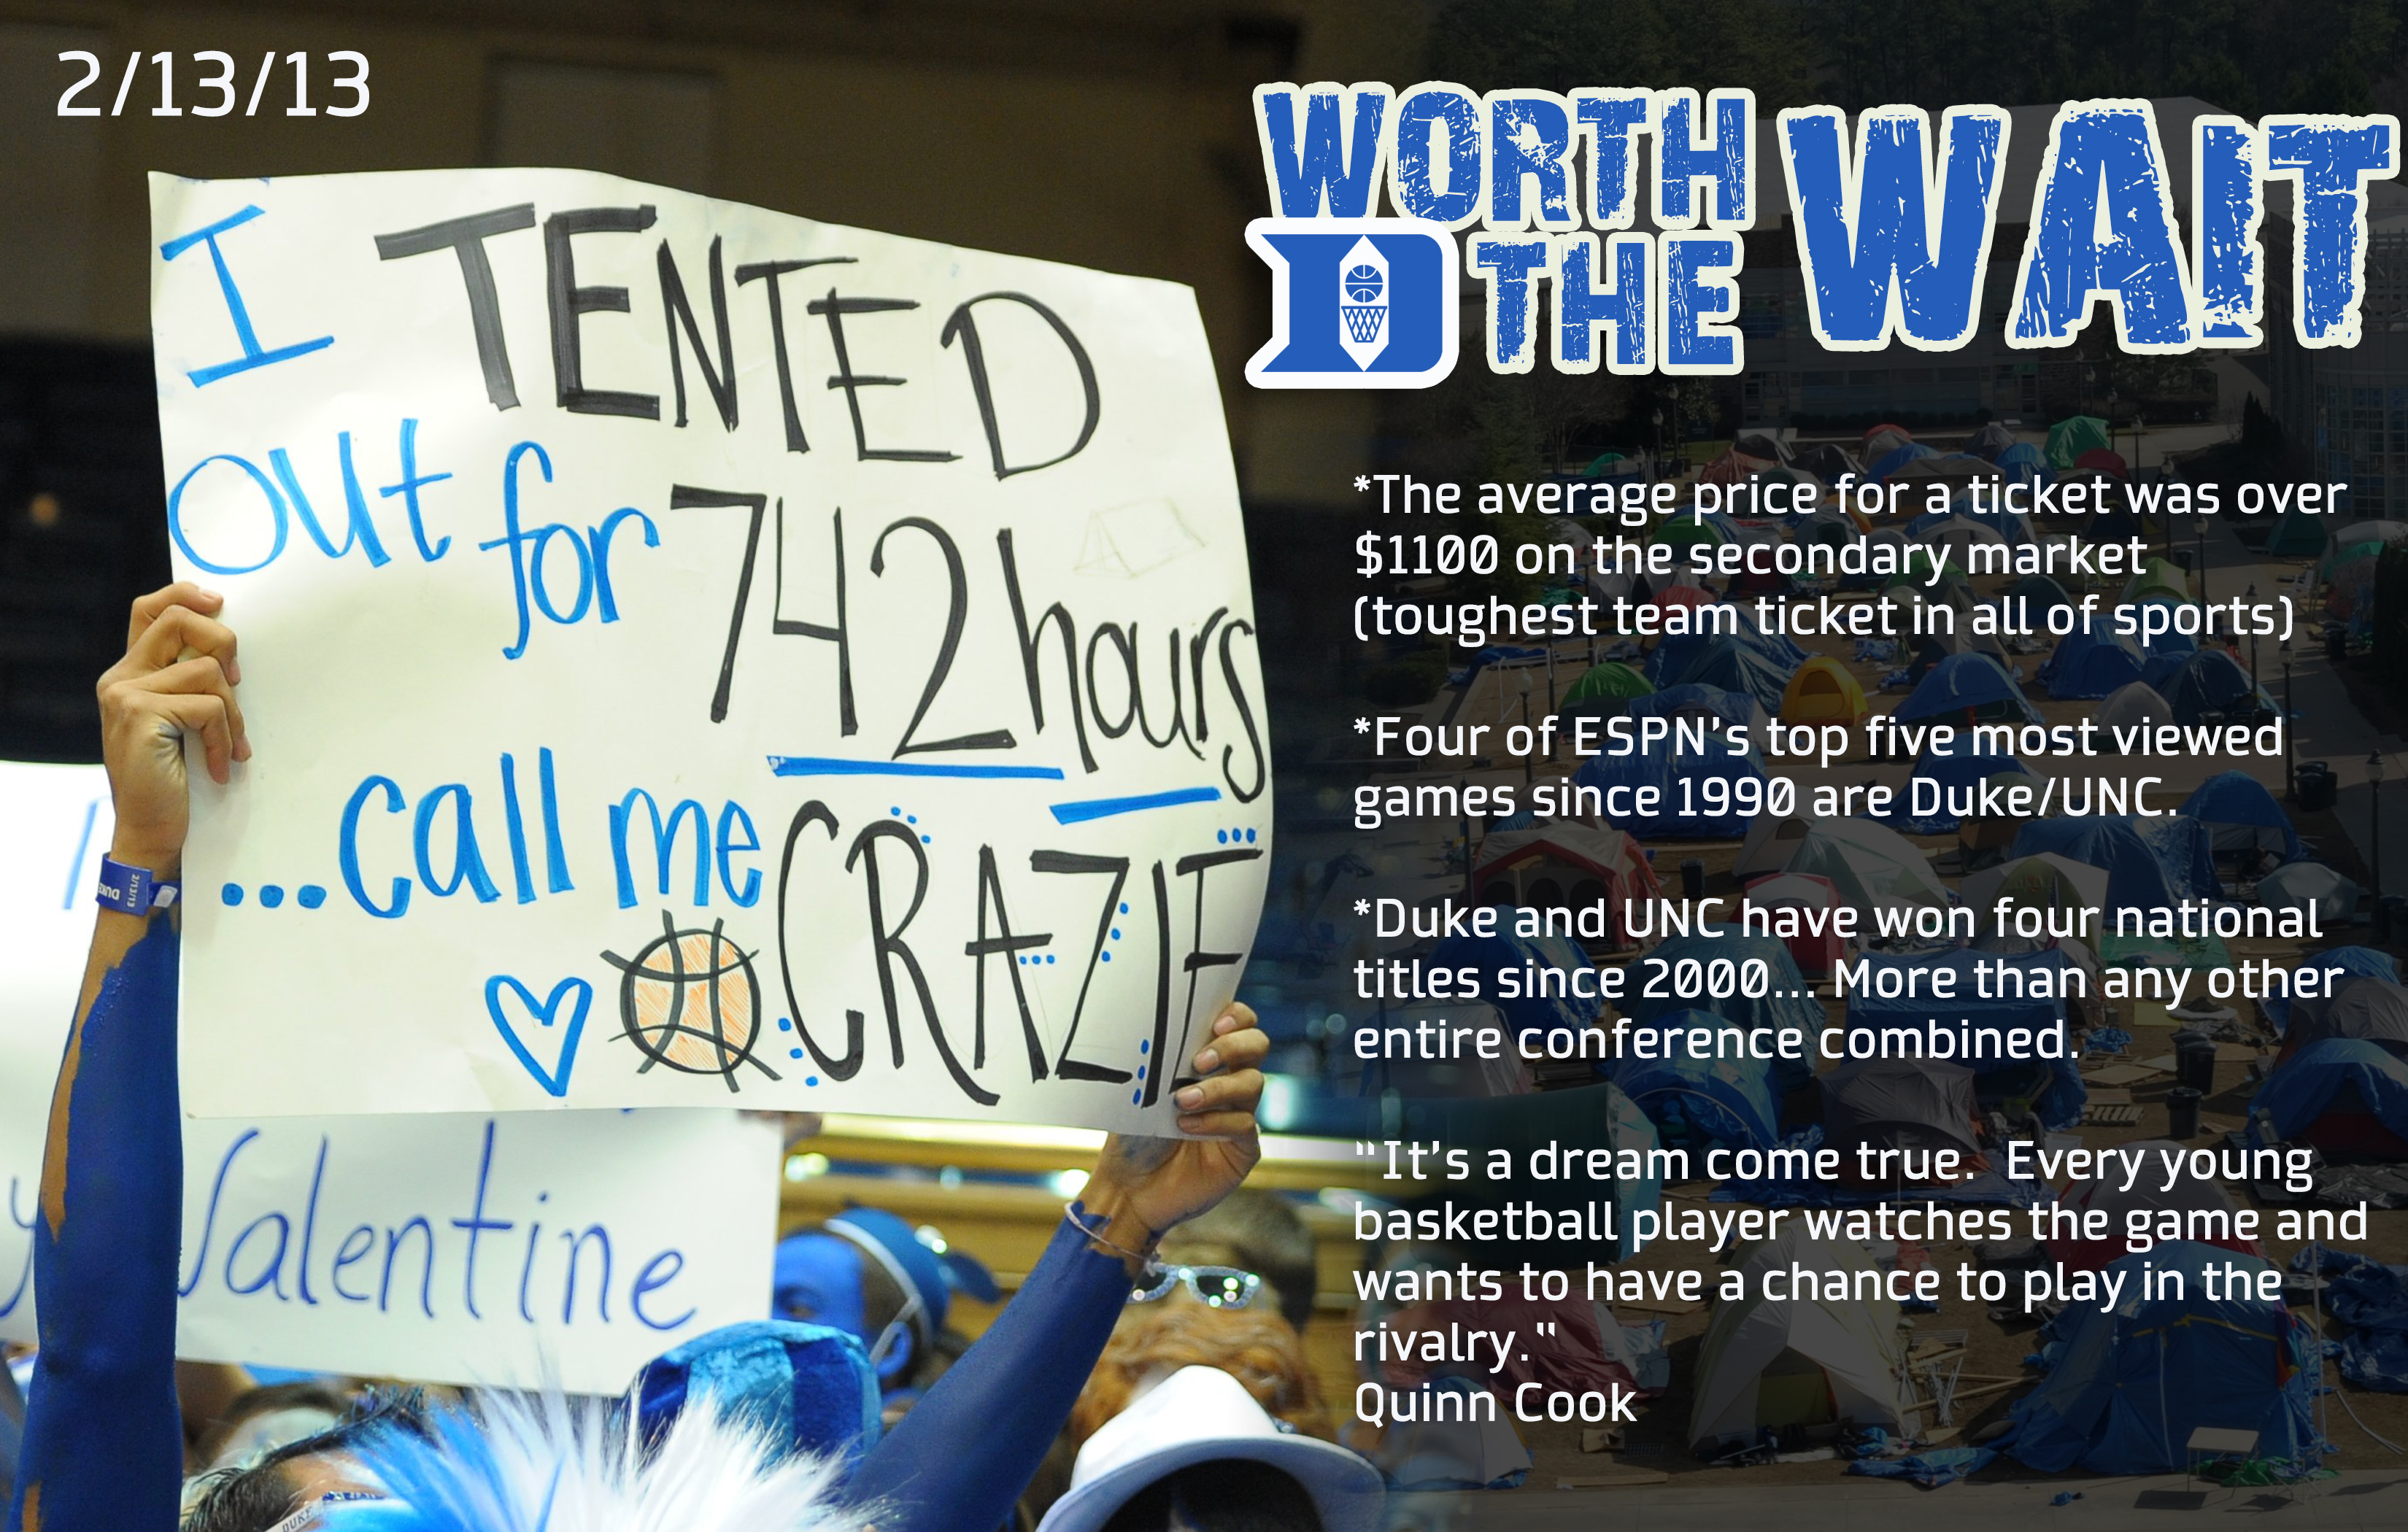 2/13/13
WORTH
THE
WAIT
I TENTED
out for 742 hours
...call me CRAZIE
DUKE 2/13/13
Valentine
DUKE
*The average price for a ticket was over
$1100 on the secondary market
(toughest team ticket in all of sports)
*Four of ESPN's top five most viewed
games since 1990 are Duke/UNC.
*Duke and UNC have won four national
titles since 2000... More than any other
entire conference combined.
"It's a dream come true.  Every young
basketball player watches the game and
wants to have a chance to play in the
rivalry."
Quinn Cook